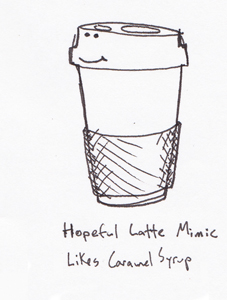 Hopeful Latte Mimic
Likes Caramel Syrup